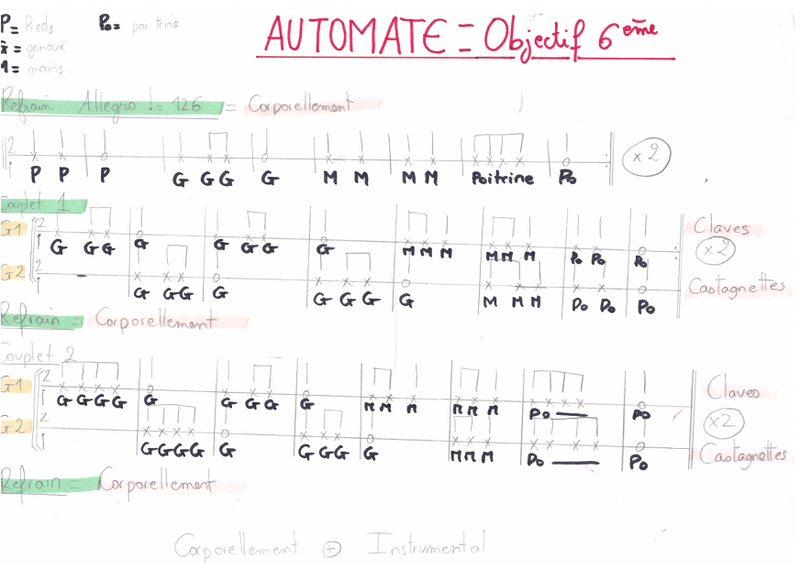 P= Pieds
Po= poitrine
x= genoux
1= mains.
AUTOMATE = Objectif 6ème
Refrain Allegro = 126 = Corporellement
2 P P P G G G G M M M M Poitrine Po x2
Couplet 1
G1 2 G G G G G G G G M M M M M M Po Po Po Claves
x2
G2 2 - G G G G G G G G M M M Do Do Po Castagnettes
Refrain = Corporellement
Couplet 2
G1 2 G G G G G G G G G M M M M M M Po Po Claves
x2
G2 G G G G G G G G G M M M Do Po Castagnettes
Refrain = Corporellement
Corporellement + Instrumental